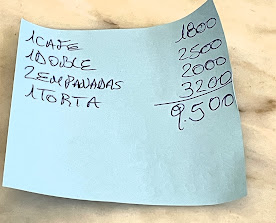 1 CAFE 1800
1 DOBLE 2500
2 EMPANADAS 2000
1 TORTA 3200
9.500